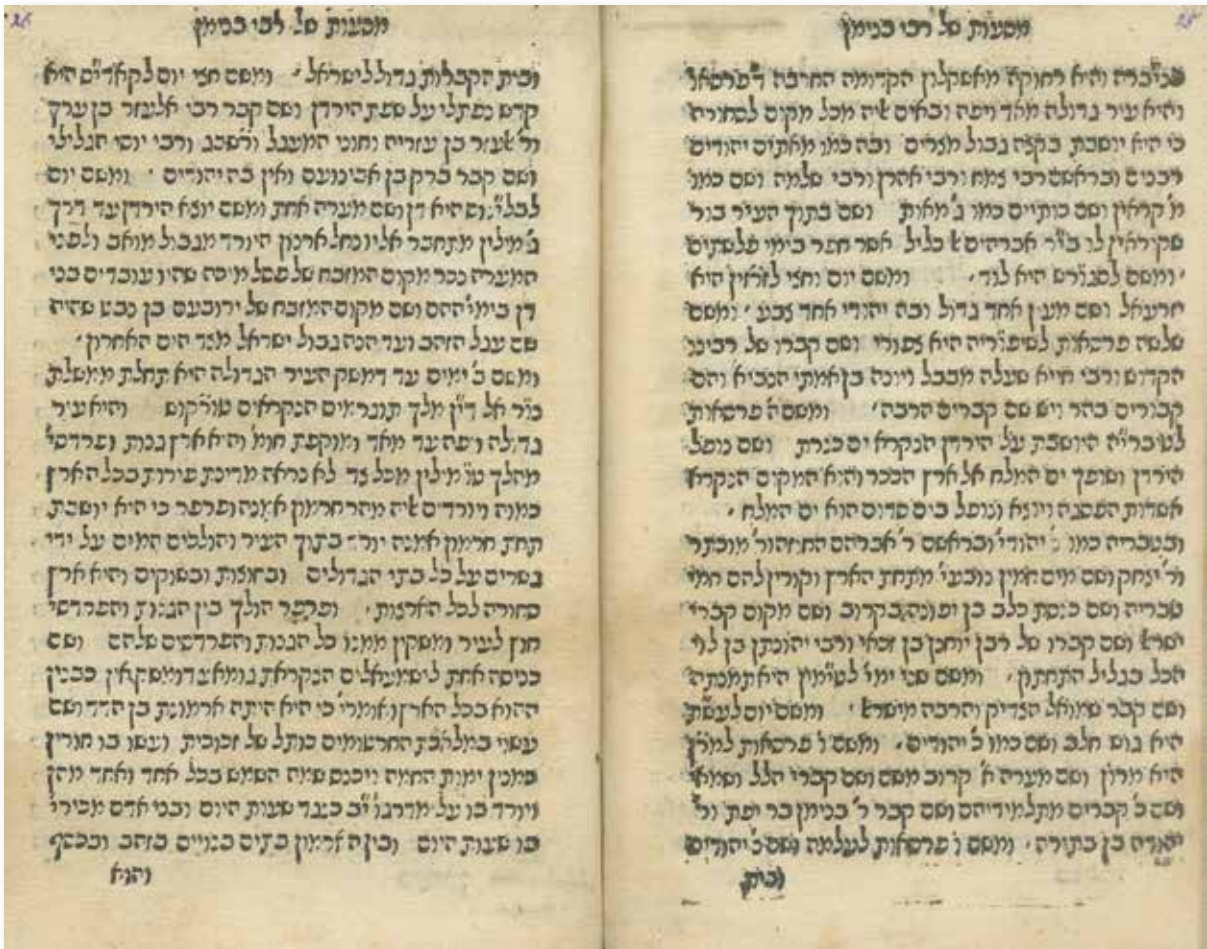 25
מסעות של רבי בנימן
בנ״ברה והיא רחוקה מאשקלון הקדומה החריבה ד׳ פרסאו׳
והיא עיר גדולה מאד ויפה ובאים אליה מכל מקום לסחורה
כי היא יושבת בקצה גבול מצרים ובה כמו מאתים יהודים
רבנים ובראשם רבי צמח ורבי אהרן ורבי שלמה ושם כמו
מ׳ קראין ושם כותיים כמו ג׳ מאות ושם בתוך העיר בור
שקוראין לו בי״ר אברהים אל כליל אשר חפר בימי פלשתים
ומשם לסנ״ורש היא לוד ומשם יום וחצי לזרזין היא
יזרעאל ושם מעין אחד גדול ובה יהודי אחד צבע ומשם
שלשה פרסאות לשיפוריה היא צפורי ושם קברו של רבינו
הקדוש ורבי חייא שעלה מבבל ויונה בן אמתי הנביא והם
קבורים בהר ויש שם קברים הרבה ומשם ה׳ פרסאות
לטיבריה היושבת על הירדן הנקרא ים כנרת ושם נופל
הירדן ושופך ים המלח אל ארץ הככר והוא המקום הנקרא
אשדות הפסגה ויוצא ונופל בים סדום הוא ים המלח
ובטבריה כמו נ׳ יהודי׳ ובראשם ר׳ אברהם החוזה ור׳ מוכתר
ור׳ יצחק ושם מים חמין נובעי׳ מתחת הארץ וקורין להם חמי
טבריה ושם כנסת כלב בן יפונה בקרוב ושם מקום קברי
ישראל ושם קברו של רבן יוחנן בן זכאי ורבי יהונתן בן לוי
הכל בגליל התחתון ומשם שני ימי׳ לטימין היא תמנתה
ושם קבר שמואל הצדיק והרבה מישראל ומשם יום לעשת
היא גוש חלב ושם כמו כ׳ יהודים ומשם ו׳ פרסאות למרון
היא מרון ושם מערה א׳ קרוב משם ושם קברי הלל ושמאי
ושם כ׳ קברים מתלמידיהם ושם קבר ר׳ בנימין בר יפת ור׳
יהודה בן בתורה ומשם ו׳ פרסאות לעלמה ושם נ׳ יהודים
ובית
26
מסעות של רבי בנימן
ובית הקברות גדול לישראל ומשם חצי יום לקאדי״ס היא
קדש נפתלי על שפת הירדן ושם קבר רבי אלעזר בן ערך
ור׳ אלעזר בן עזריה וחוני המעגל ורשבג ורבי יוסי הגלילי
ושם קבר ברק בן אבינועם ואין בה יהודים ומשם יום
לבלינ״ש היא דן ושם מערה אחת ומשם יוצא הירדן עד דרך
ג׳ מילין מתחבר אליו נחל ארנון היורד מגבול מואב ולפני
המערה נכר מקום המזבח של פסל מיכה שהיו עובדים בני
דן בימי׳ ההם ושם מקום המזבח של ירובעם בן נבט שהיה
שם עגל הזהב ועד הנה גבול ישראל מצד הים האחרון
ומשם ב׳ ימים עד דמשק העיר הגדולה היא תחלת ממשלת
נור אל די״ן מלך תוגרמים הנקראים טורקוש והיא עיר
גדולה ויפה עד מאד ומוקפת חומה והיא ארץ גנות ופרדסי׳
מהלך טו׳ מילין מכל צד לא נראה מדינת פירות בכל הארץ
כמוה ויורדים אליה מהר חרמון אמנה ופרפר כי היא יושבת
תחת חרמון אמנה יורד בתוך העיר והולכים המים על ידי
גשרים על כל בתי הגדולים ובחוצות ובשוקים והיא ארץ
סחורה לכל הארצות ופרפר הולך בין הגנות והפרדסי׳
חוץ לעיר ומשקין ממנו כל הגנות והפרדסים שלהם ושם
כניסה אחת לישמעאלים הנקראת גומא עד ומשק אין כבנין
ההוא בכל הארץ ואומרי׳ כי היא היתה ארמונת בן הדד ושם
עשוי במלאכת החרטומים כותל של זכוכית ועשו בו חורין
כמנין ימות החמה ויכנס שמה השמש בכל אחד ואחד מהן
ויורד בו על מדרגו׳ י״ב כנגד שעות היום ובני אדם מכירי׳
בו שעות היום ובין הארמון בתים בנויים בזהב ובכסף
והוא